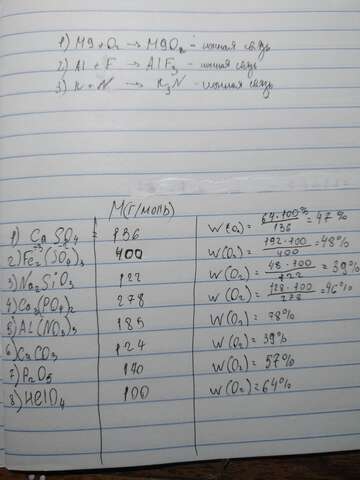 1) Mg + O₂ → MgO₂ - ионная связь
2) Al + F → AlF₃ - ионная связь
3) K + N → K₃N - ионная связь
M(г/моль)
1) CaSO₄ = 136 W(O₂) = 64·100% / 136 = 47%
2) Fe₂(SO₄)₃ 400 W(O₂) = 192·100 / 400 = 48%
3) Na₂SiO₃ 122 W(O₂) = 48·100 / 122 = 39%
4) Ca₃(PO₄)₂ 278 W(O₂) = 128·100 / 278 = 46%
5) Al(NO₃)₃ 185 W(O₂) = 78%
6) CaCO₃ 124 W(O₂) = 39%
7) P₂O₅ 140 W(O₂) = 57%
8) HClO₄ 100 W(O₂) = 64%